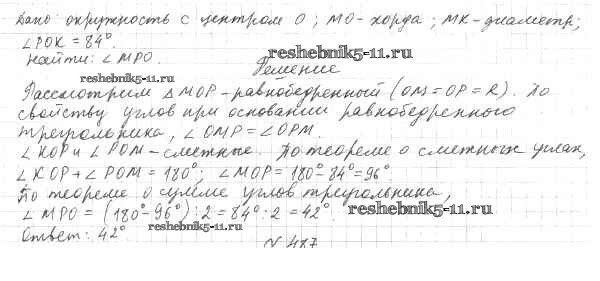 Дано: окружность с центром O; MO-хорда; MK-диаметр;
∠POK = 84°.
Найти: ∠MPO.
reshebnik5-11.ru
reshebnik5-11.ru
Решение
Рассмотрим △MOP-равнобедренный (OM=OP=R). По
свойству углов при основании равнобедренного
треугольника, ∠OMP=∠OPM.
∠KOP и ∠POM-смежные. По теореме о смежных углах,
∠KOP+∠POM=180°; ∠MOP=180°-84°=96°
По теореме о сумме углов треугольника,
∠MPO = (180°-96°):2=84°:2=42°.
reshebnik5-11.ru
Ответ: 42°
reshebnik5-11.ru
N 487